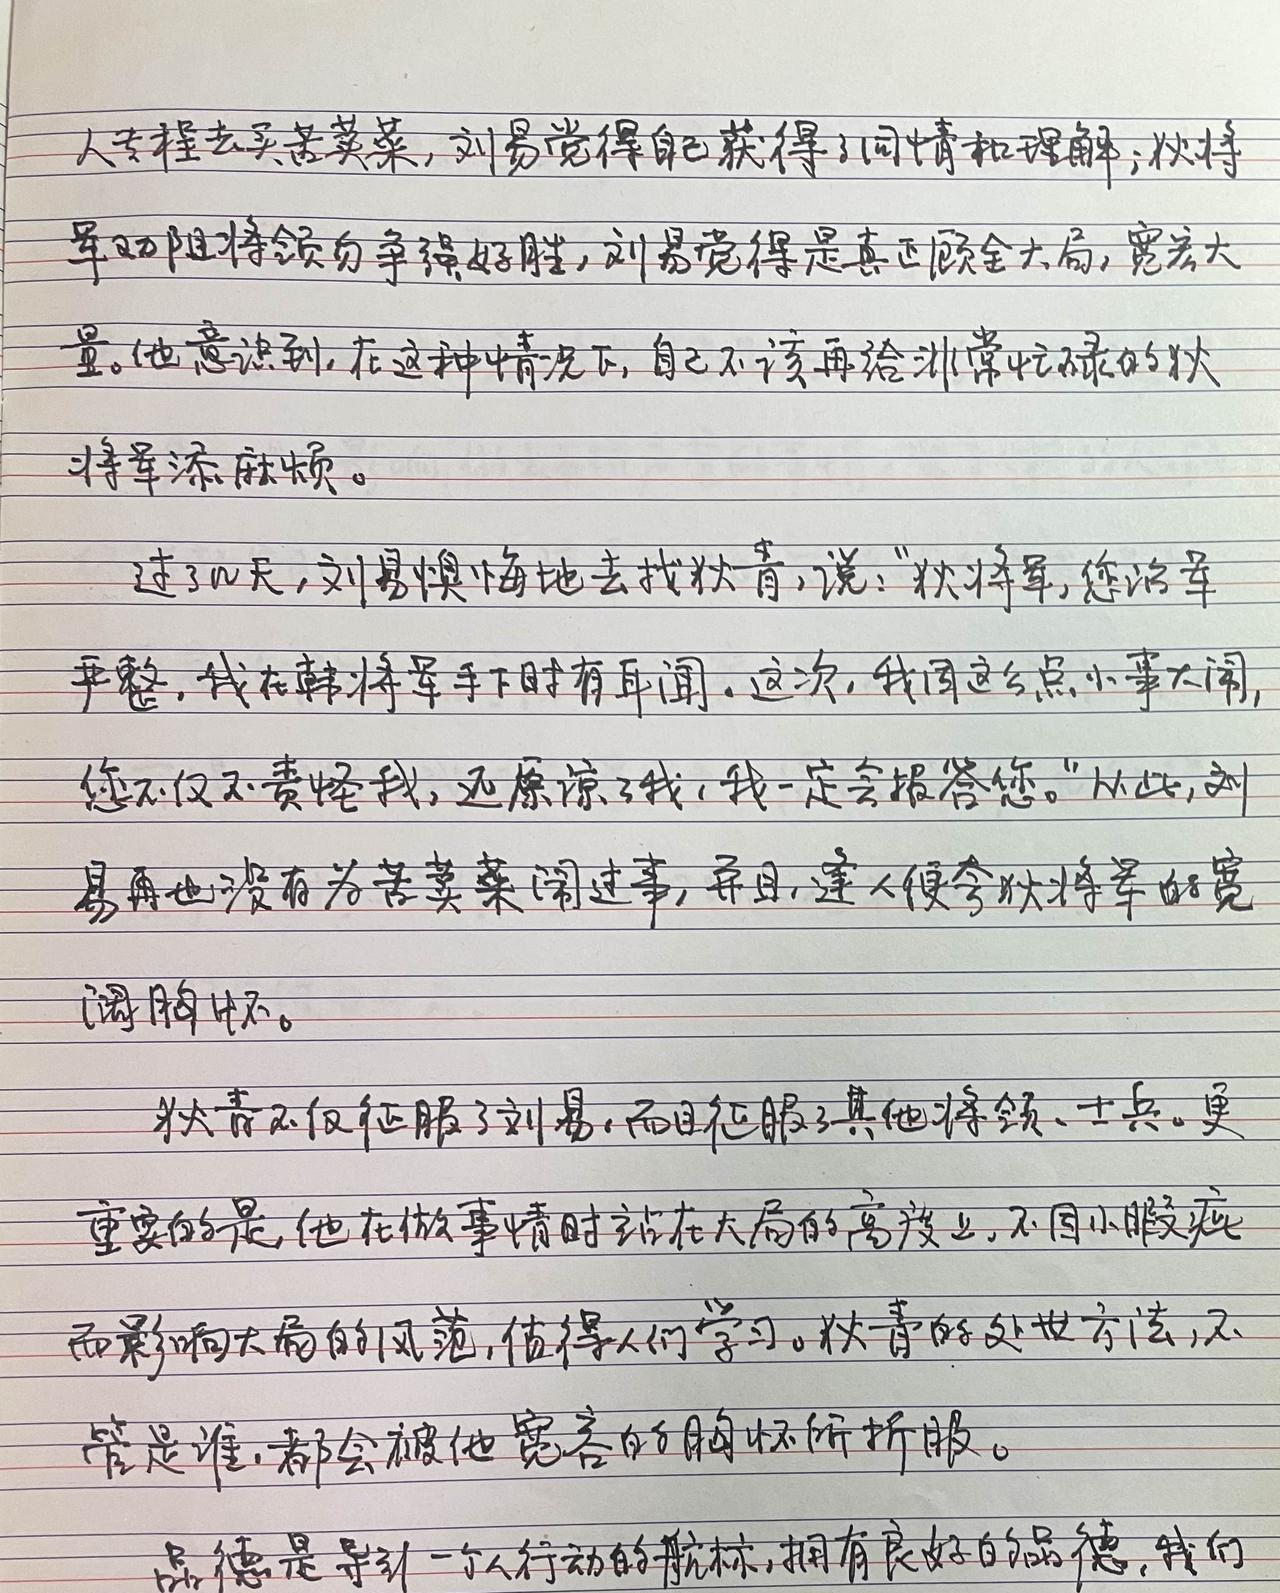 人专程去买苦荬菜，刘易觉得自己获得了同情和理解；狄将
军劝阻将领勿争强好胜，刘易觉得是真正顾全大局，宽宏大
量。他意识到，在这种情况下，自己不该再给非常忙碌的狄
将军添麻烦。
过了几天，刘易懊悔地去找狄青，说：“狄将军，您治军
严整，我在韩将军手下时有耳闻。这次，我因这么点小事大闹，
您不仅不责怪我，还原谅了我，我一定会报答您。”从此，刘
易再也没有为苦荬菜闹过事，并且，逢人便夸狄将军的宽
阔胸怀。
狄青不仅征服了刘易，而且征服了其他将领、士兵。更
重要的是，他在做事情时站在大局的高度上，不因小瑕疵
而影响大局的风范，值得人们学习。狄青的处世方法，不
管是谁，都会被他宽容的胸怀所折服。
品德是导引一个人行动的航标，拥有良好的品德，我们